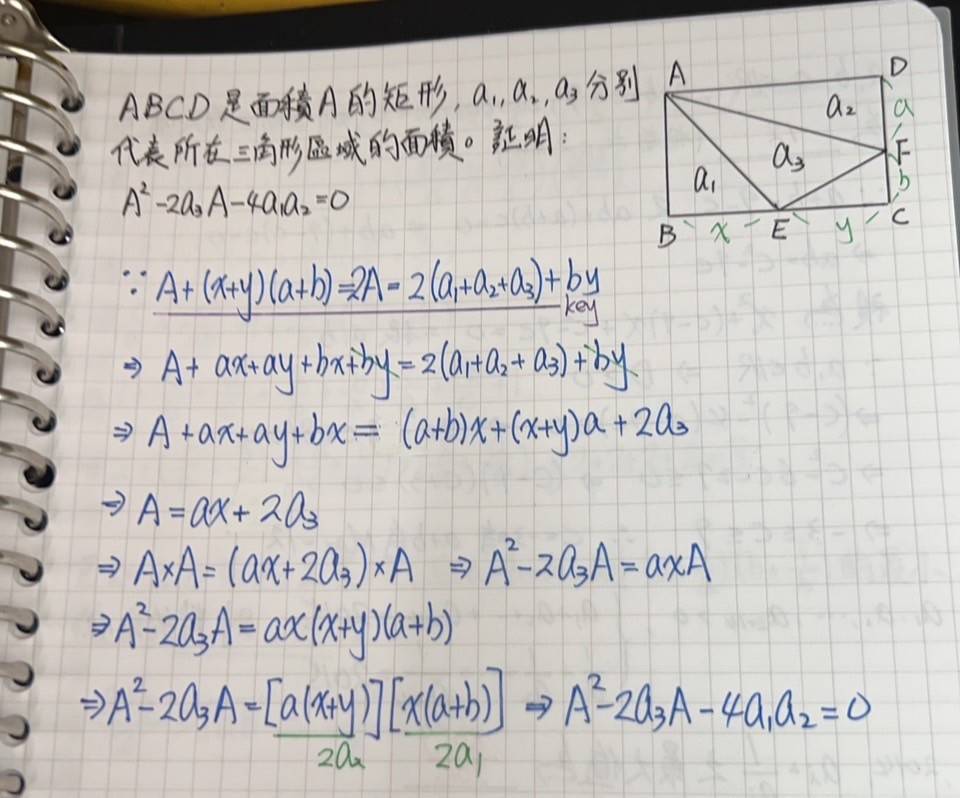 ABCD是面積A的矩形, a₁, a₂, a₃分別
代表所在三角形區域的面積。証明:
A²-2a₃A-4a₁a₂=0
A
D
a₂
a
a₃
F
a₁
b
B
x
E
y
C
∵ A+(x+y)(a+b)=2A=2(a₁+a₂+a₃)+by
key
⇒ A+ax+ay+bx+by=2(a₁+a₂+a₃)+by
⇒ A+ax+ay+bx=(a+b)x+(x+y)a+2a₃
⇒ A=ax+2a₃
⇒ A×A=(ax+2a₃)×A ⇒ A²-2a₃A=axA
⇒ A²-2a₃A=ax(x+y)(a+b)
⇒ A²-2a₃A=[a(x+y)][x(a+b)] ⇒ A²-2a₃A-4a₁a₂=0
2a₂ 2a₁